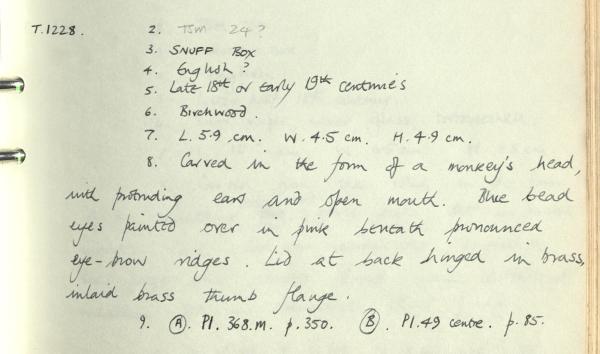 T.1228. 2. TSM 24?
3. SNUFF BOX
4. English?
5. Late 18th or early 19th centuries
6. Birchwood.
7. L. 5.9 cm. W. 4.5 cm. H. 4.9 cm.
8. Carved in the form of a monkey's head,
with protruding ears and open mouth. Blue bead
eyes painted over in pink beneath pronounced
eye-brow ridges. Lid at back hinged in brass,
inlaid brass thumb flange.
9. (A). Pl. 368.m. p.350. (B). Pl.49 centre. p.85.